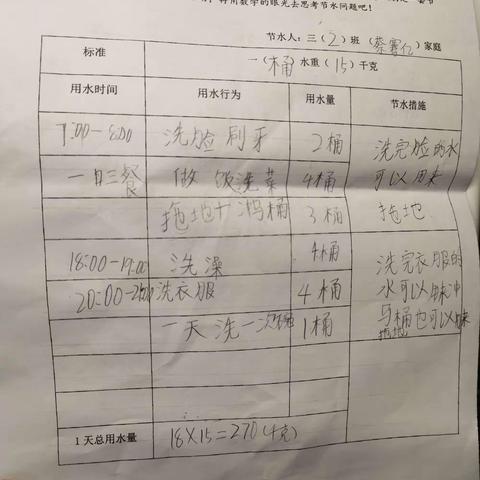 用数学的眼光去思考节水问题吧！
节水人：三（2）班（蔡 亿）家庭
标准 一（桶）水重（15）千克
用水时间 用水行为 用水量 节水措施
7:00-8:00 洗脸刷牙 2桶 洗完脸的水
一日三餐 做饭洗菜 4桶 可以用来
拖地十 桶 3桶 拖地
18:00-19:00 洗澡 4桶 洗完衣服的
20:00- 洗衣服 4桶 水可以用来冲
一天洗一次 1桶 马桶也可以用来
拖地
1天总用水量 18×15=270(千克)